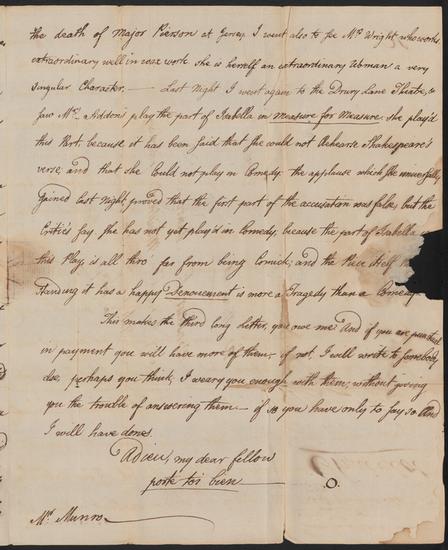 the death of Major Pierson at Jersey. I went also to see Mrs Wright who works
extraordinary well in wax work. she is herself an extraordinary Woman a very
singular Character. — Last Night I went again to the Drury Lane Theatre, to
saw Mrs Siddons play the part of Isabella in Measure for Measure. she play'd
this Part, because it has been said that she could not Rehearse Shakespeare's
verse, and that she Could not play in Comedy. the applause which she universally
gained last Night, proved that the first part of the accusation was false, but the
Critics say she has not yet play'd in Comedy, because the part of Isabella
this Play is all thro' far from being Comick; and the Piece itself
standing it has a happy Denouement is more a Tragedy than a Comedy
This makes the third long letter, you owe me And if you are punctual
in payment you will have more of them, if not, I will write to somebody
else, perhaps you think, I weary you enough with them, without giving
you the trouble of answering them — if so you have only to say so And
I will have done.
Adieu, my dear fellow
porte toi bien —
Mr Munro